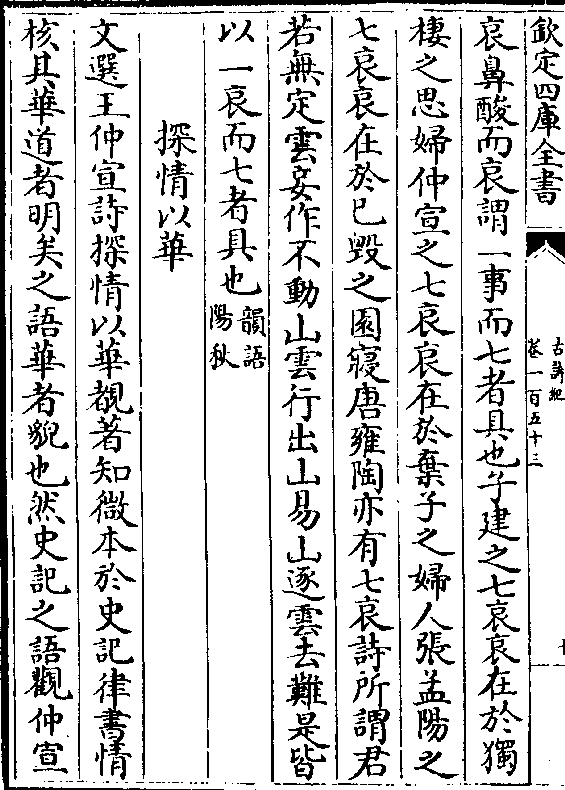 欽定四庫全書
古詩紀
卷一百五十三
十
哀鼻酸而哀謂一事而七者具也子建之七哀哀在於獨
棲之思婦仲宣之七哀哀在於棄子之婦人張孟陽之
七哀哀在於已毀之園寢唐雍陶亦有七哀詩所謂君
若無定雲妾作不動山雲行出山易山逐雲去難是皆
以一哀而七者具也韻語
陽秋
探情以華
文選王仲宣詩探情以華覩著知微本於史記律書情
核其華道者明矣之語華者貌也然史記之語觀仲宣